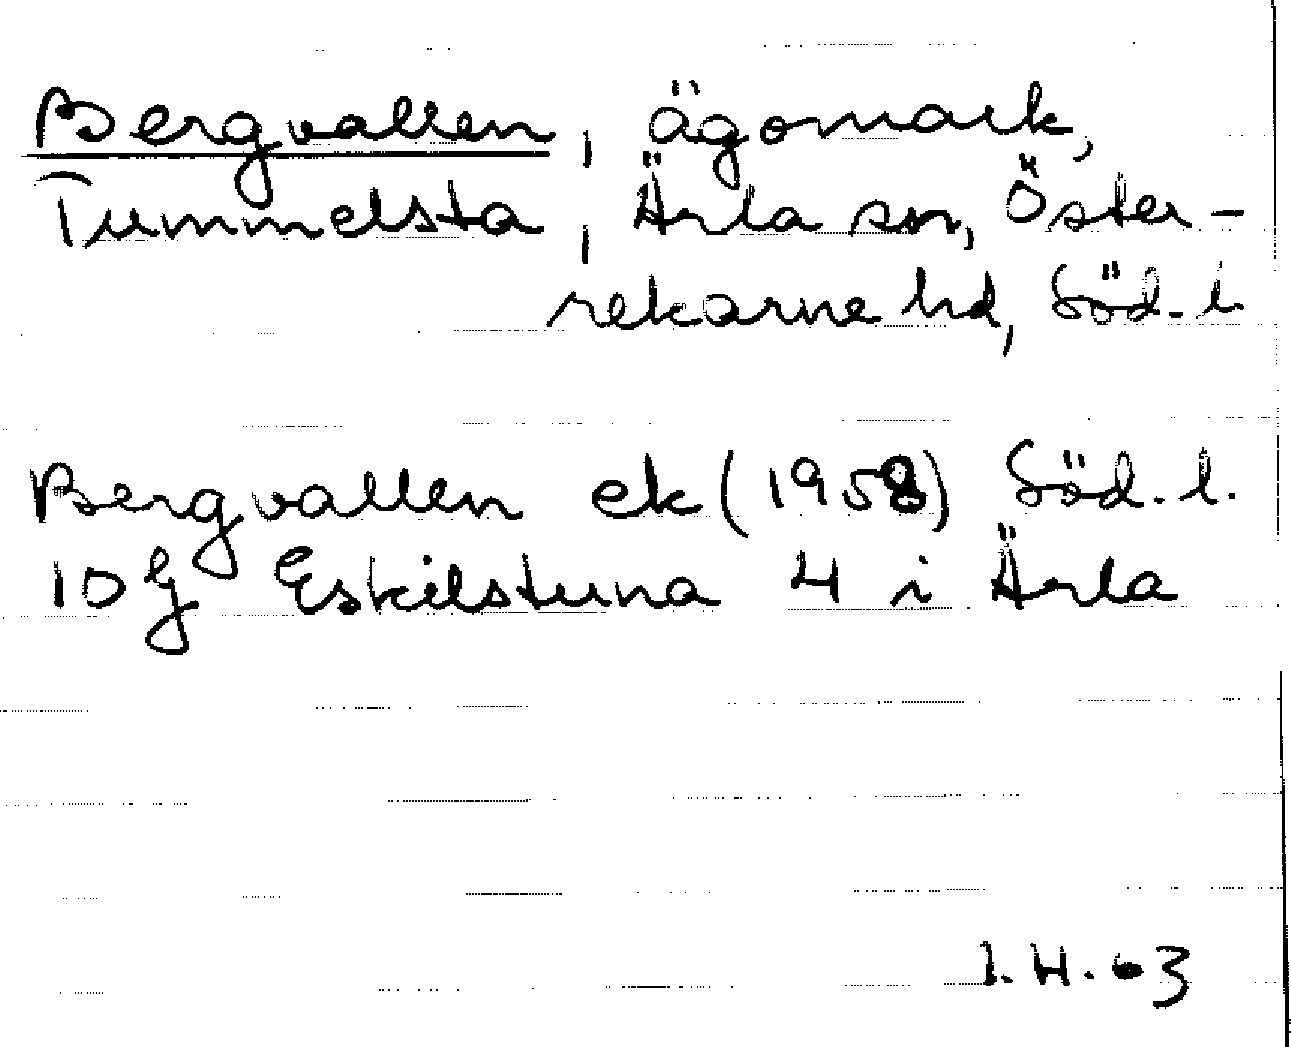 Bergvallen, ägomark,
Tummelsta, Ärla sn, Öster-
rekarne hd, Söd. l.
Bergvallen ek (1958) Söd. l.
10 g Eskilstuna 4 i Ärla
I.H. 63